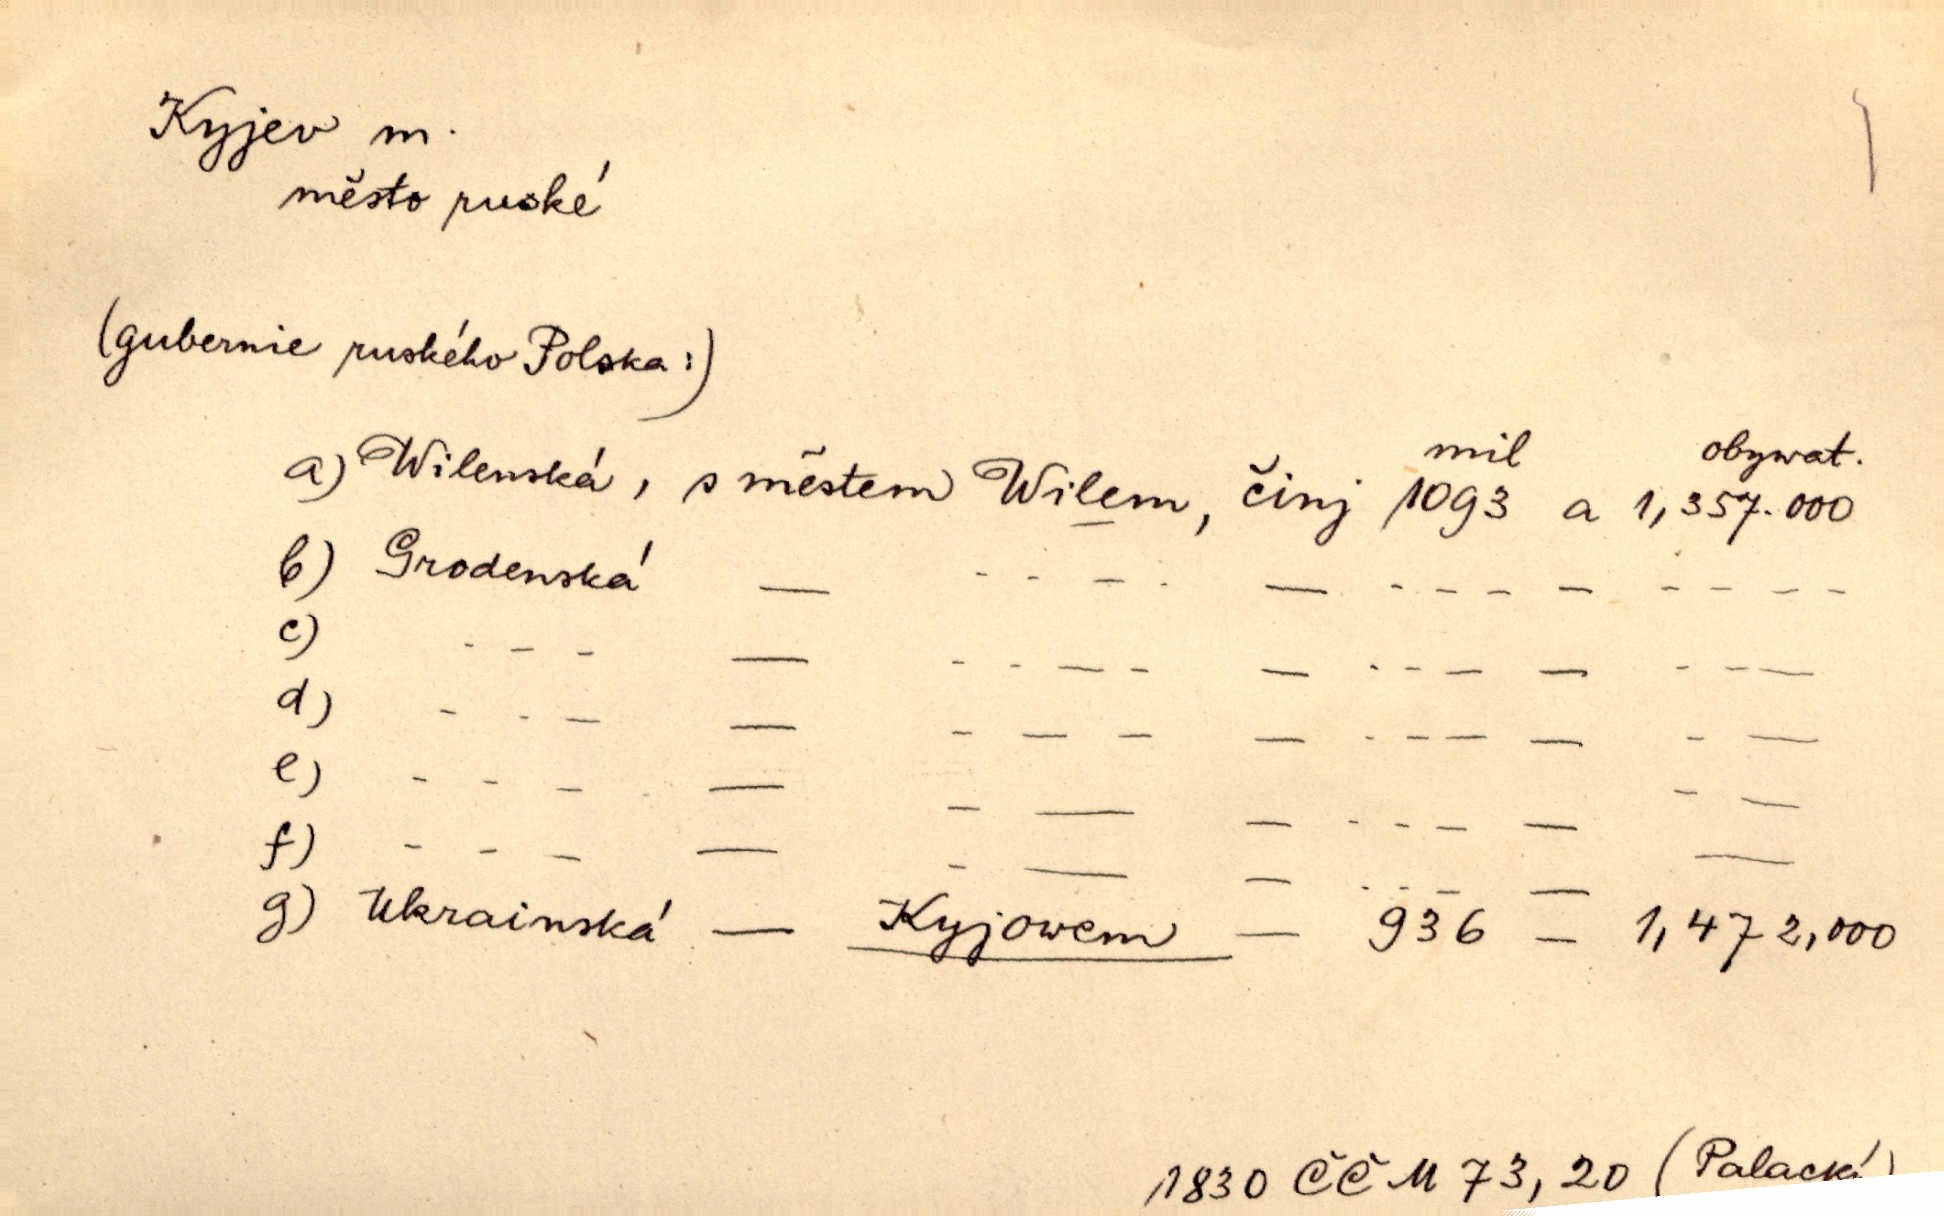 Kyjev m.
město ruské
(gubernie ruského Polska:)
mil obywat.
a) Wilenská, s městem Wilem, činj 1093 a 1,357.000
b) Grodenská — - - — - — - - - — - - - -
c) - - - — - - — - — - - - — - - —
d) - - - — - — - — - - - — - —
e) - - - — - — — - - - — - —
f) - - - — - — — - - - — —
g) Ukrainská — Kyjowem — 936 — 1,472,000
1830 ČČM 73, 20 (Palacký)